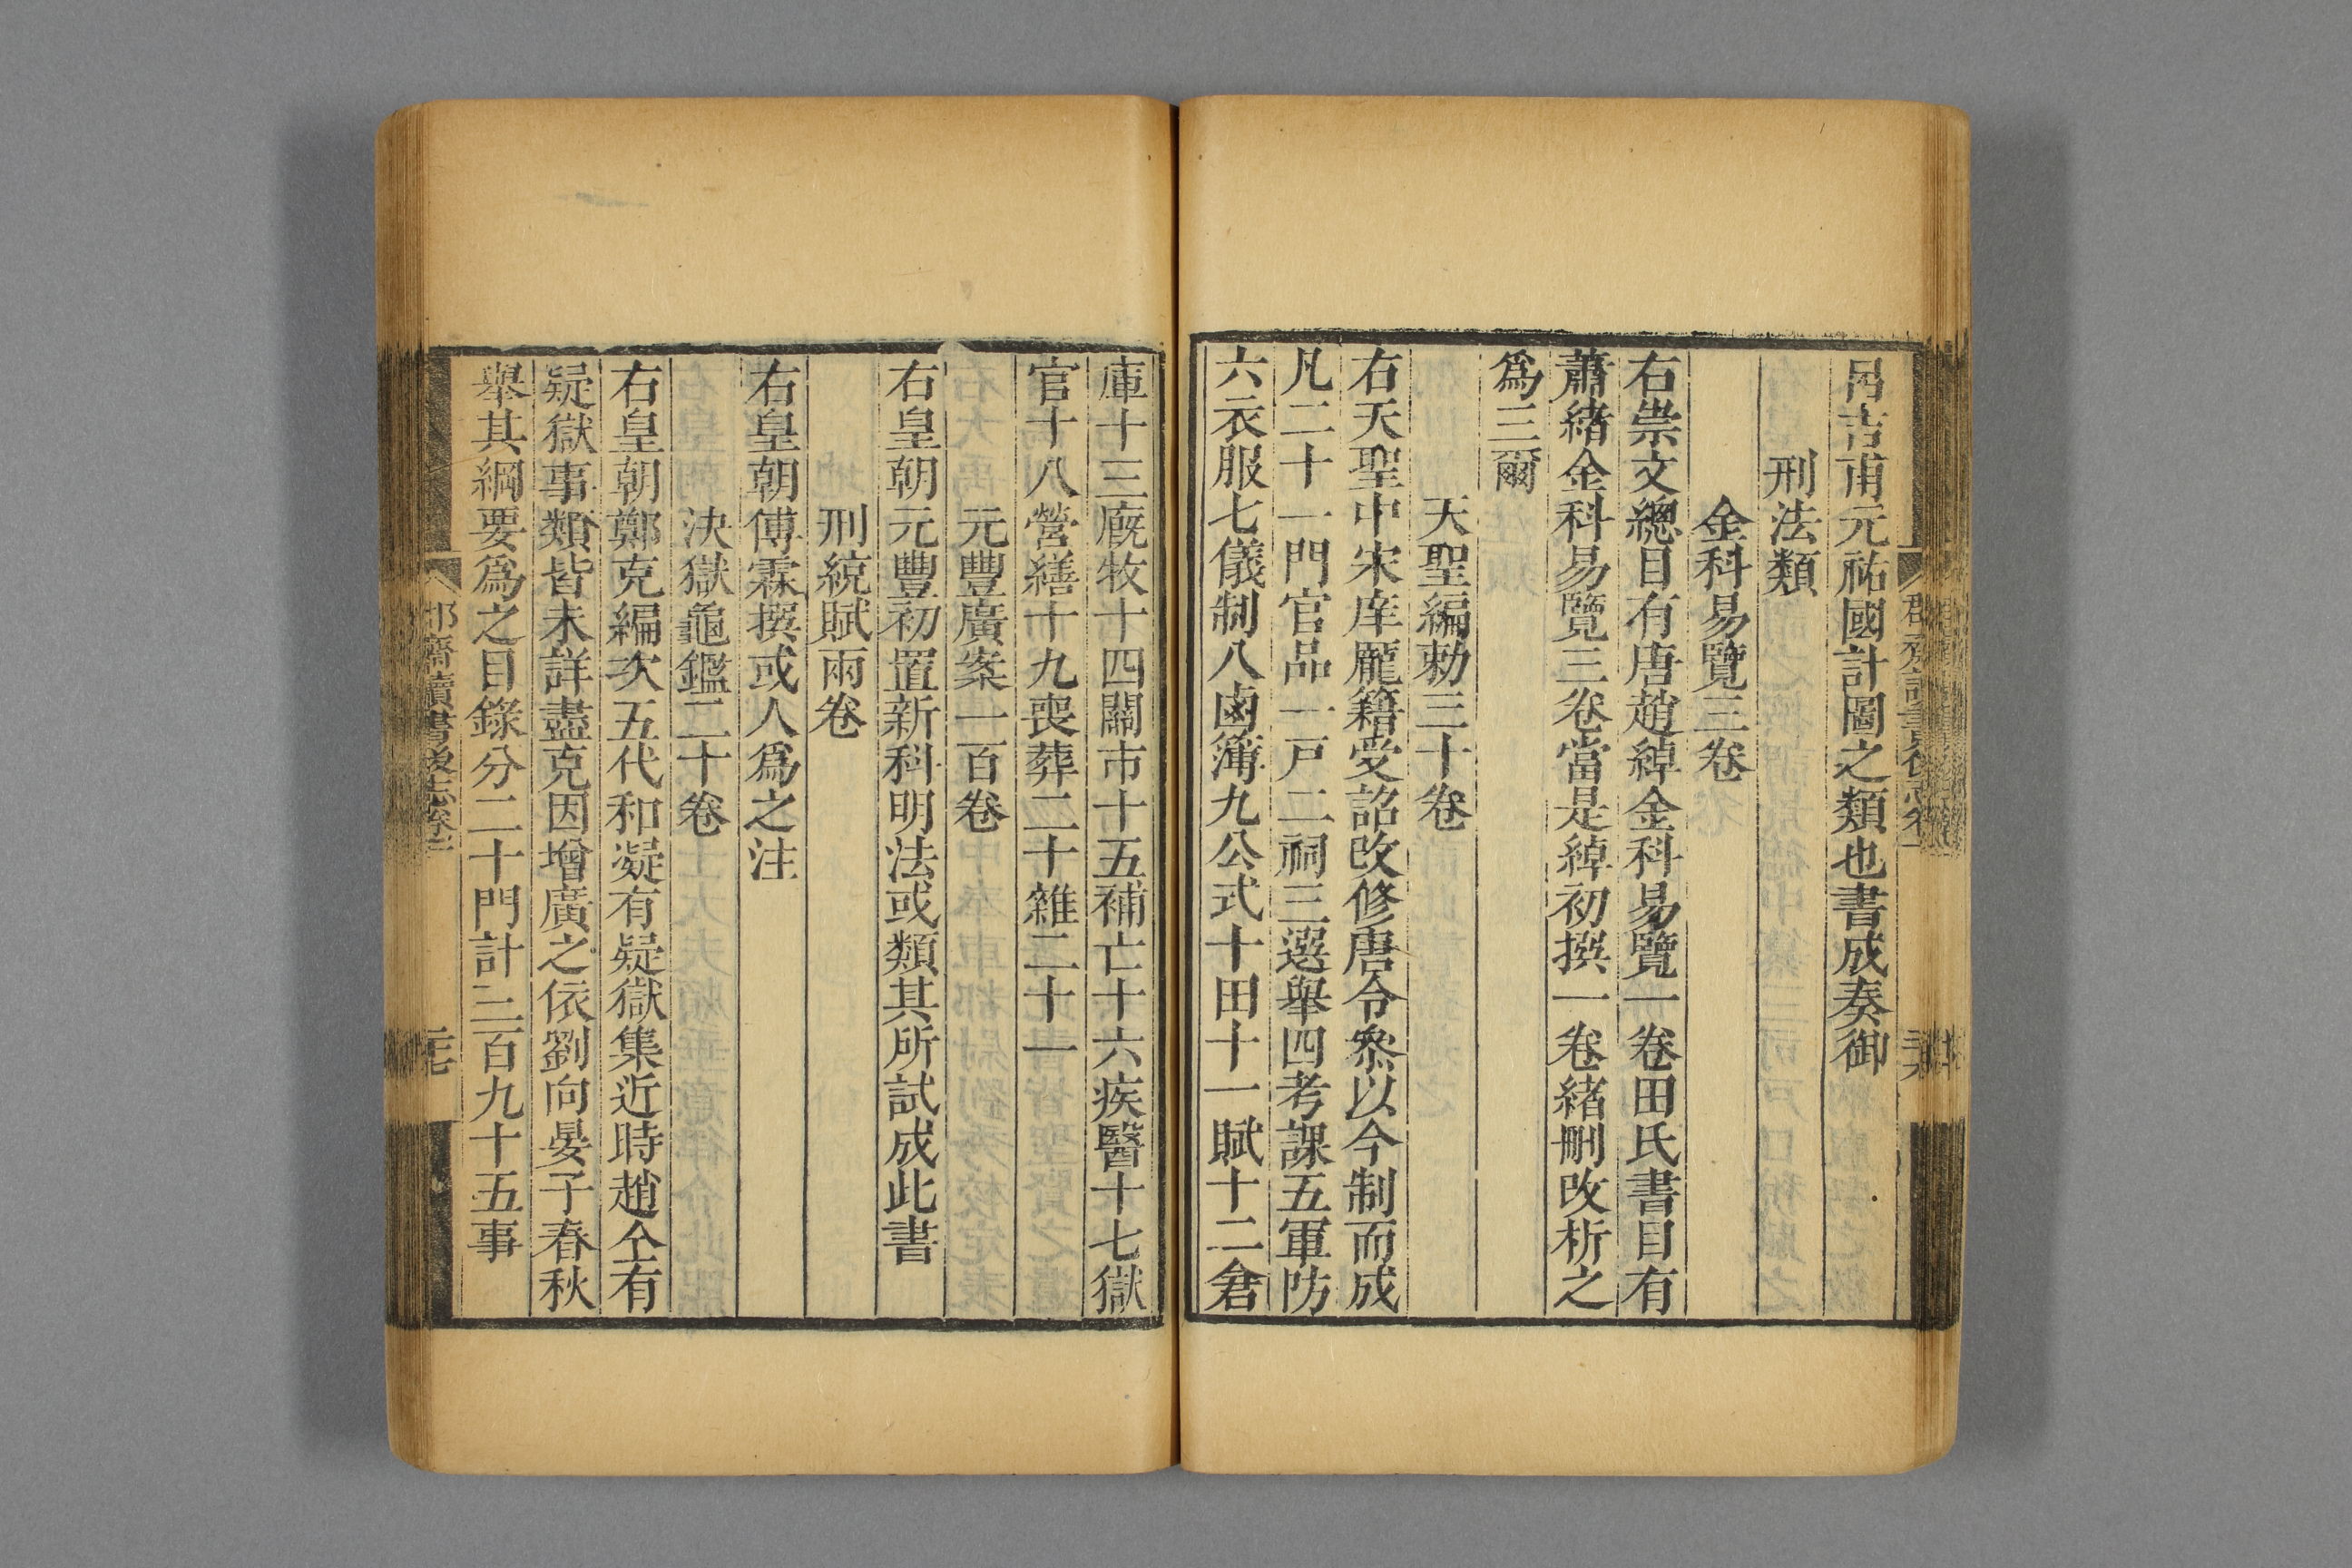 呂吉甫元祐國計圖之類也書成奏御
刑法類
金科易覽三卷
右崇文總目有唐趙綽金科易覽一卷田氏書目有
蕭緒金科易覽三卷當是綽初撰一卷緒刪改析之
爲三爾
天聖編勅三十卷
右天聖中宋庠龐籍受詔改修唐令叅以今制而成
凡二十一門官品一戸二祠三選舉四考課五軍防
六衣服七儀制八鹵簿九公式十田十一賦十二倉
庫十三廐牧十四關市十五補亡十六疾醫十七獄
官十八營繕十九喪葬二十雜二十一
元豐廣案一百卷
右皇朝元豐初置新科明法或類其所試成此書
刑統賦兩卷
右皇朝傅霖撰或人爲之注
決獄龜鑑二十卷
右皇朝鄭克編次五代和凝有疑獄集近時趙仝有
疑獄事類皆未詳盡克因增廣之依劉向晏子春秋
舉其綱要爲之目錄分二十門計三百九十五事